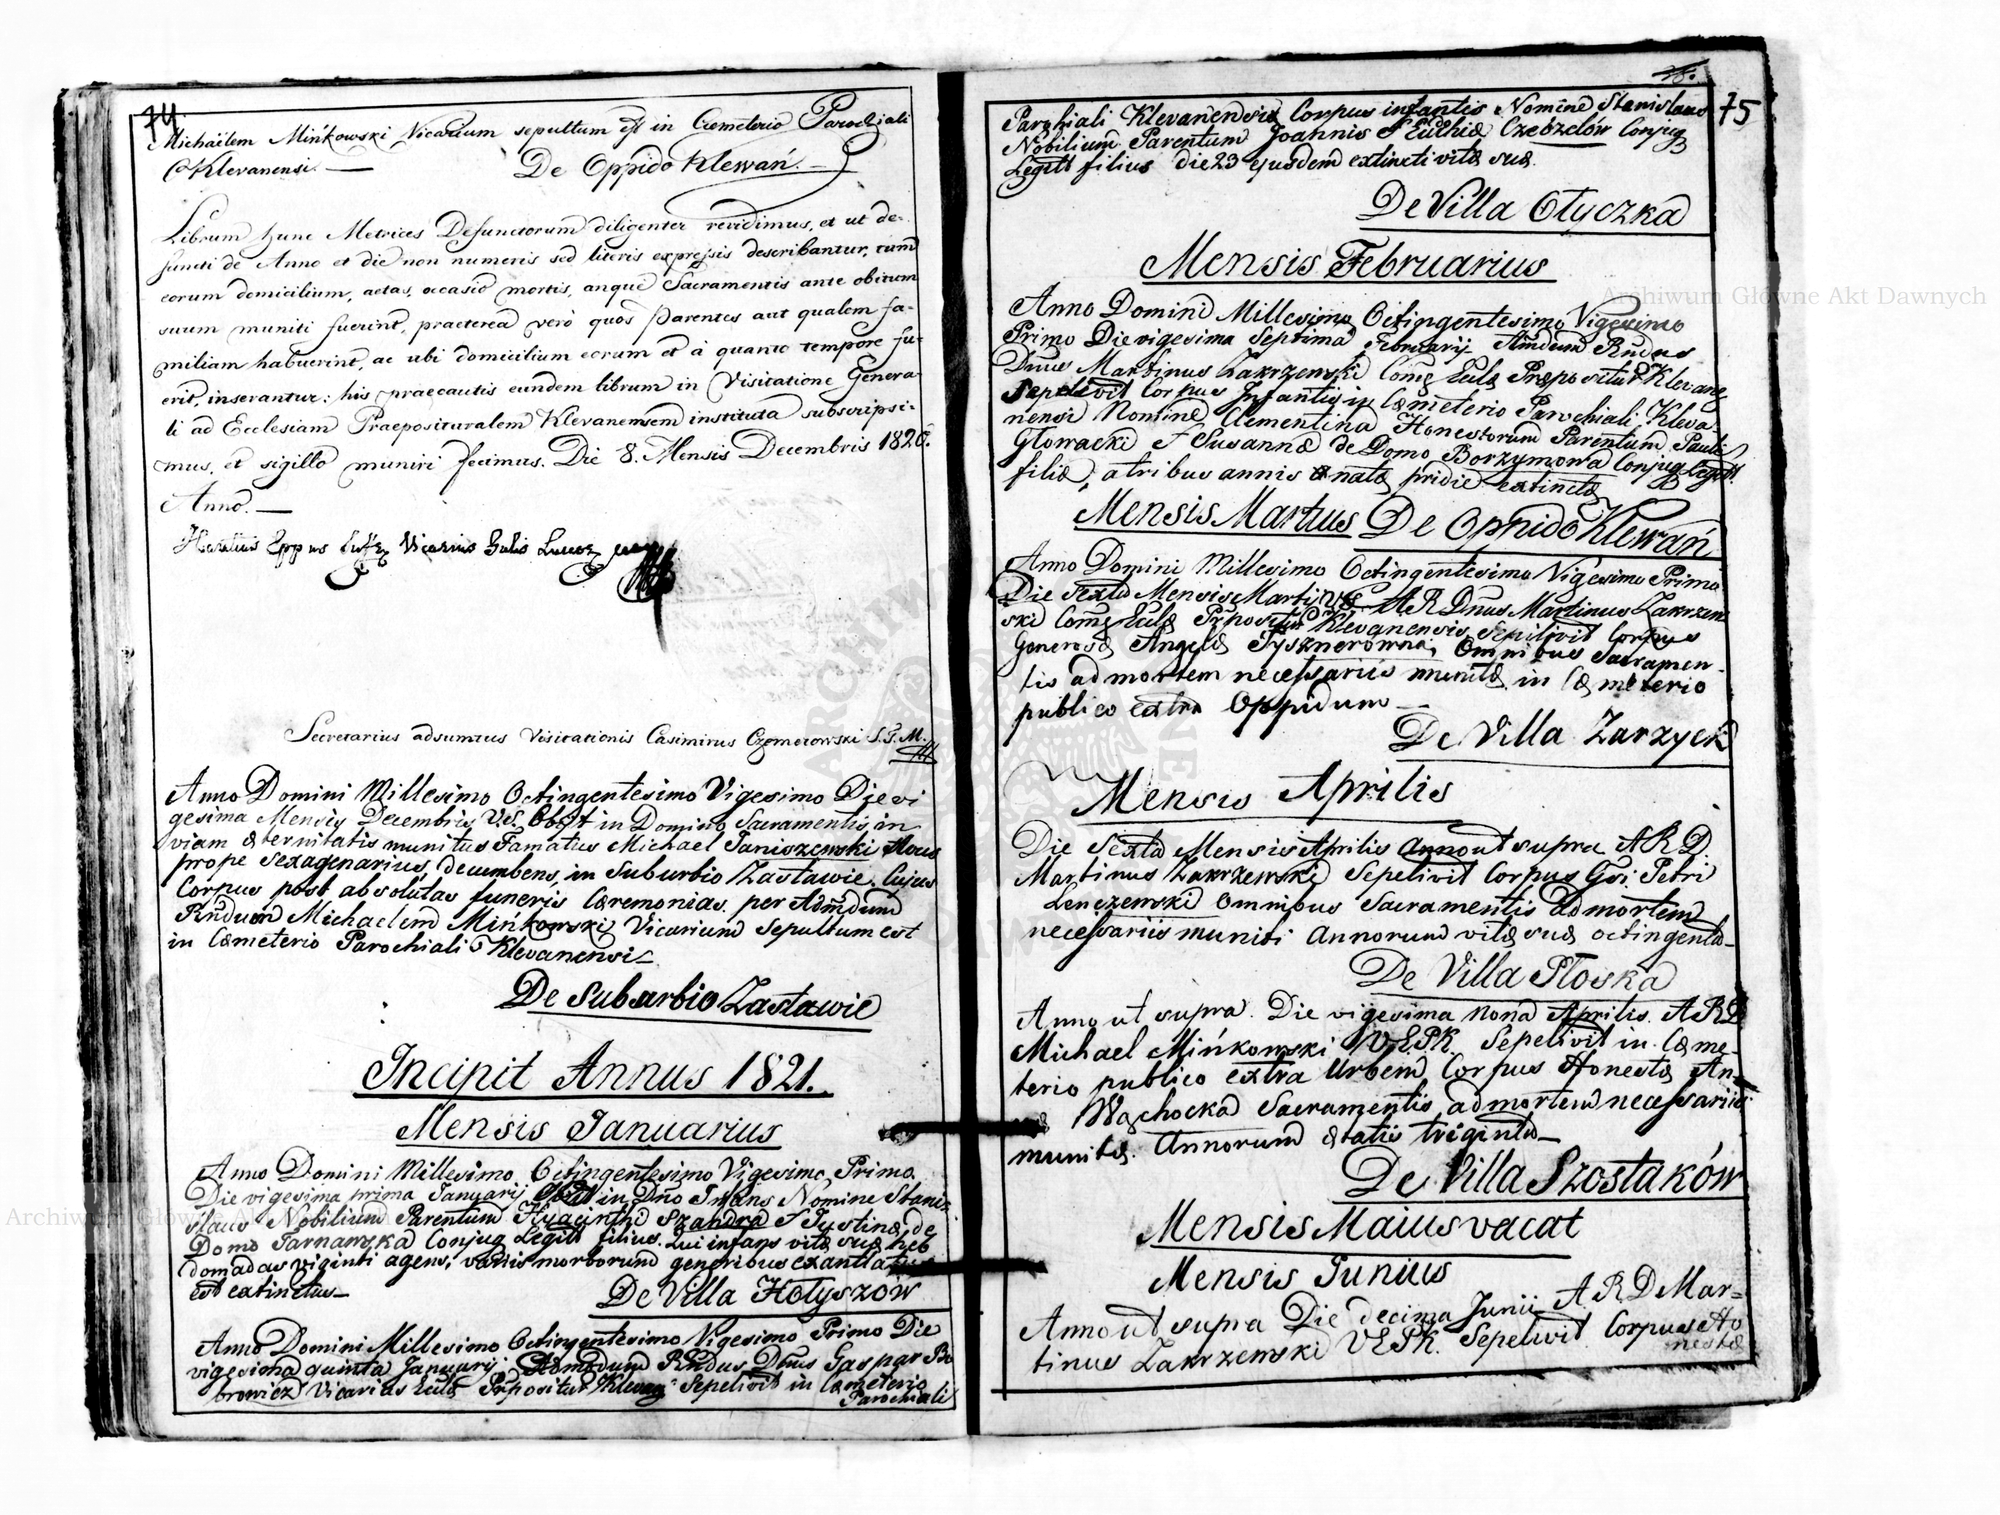 74.
Michaëlem Mińkowski Vicarium sepultum est in Cœmeterio Parochiali
Klevanensi.
De Oppido Klewań.
Librum hunc Metrices Defunctorum diligenter revidimus, et ut de-
functi de Anno et die non numeris sed literis expressis describantur, tum
eorum domicilium, aetas, occasio mortis, anque Sacramentis ante obitum
suum muniti fuerint, praeterea verò quos Parentes aut qualem fa-
miliam habuerint, ac ubi domicilium eorum et à quanto tempore fu-
erit, inserantur: his praecautis eundem librum in Visitatione Genera-
li ad Ecclesiam Praeposituralem Klevanensem instituta subscripsi-
mus, et sigillo muniri fecimus. Die 8. Mensis Decembris 1820.
Anno.
Eppus Vicarius
Secretarius adsumtus Visitationis Casimirus Czemerowski S.T.M.
Anno Domini Millesimo Octingentesimo Vigesimo Die vi
gesima Mensis Decembris V.S. Obijt in Domino Sacramentis in
viam æternitatis munitus Famatus Michael Janiszewski
prope sexagenarius, decumbens, in Suburbio Zastawie. Cujus
Corpus post absolutas funeris Cæremonias per Admdum
Rndum Michaelem Mińkowski Vicarium Sepultum est
in Cæmeterio Parochiali Klevanensi
De Suburbio Zastawie
Incipit Annus 1821.
Mensis Januarius
Anno Domini Millesimo Octingentesimo Vigesimo Primo.
Die vigesima prima Januarij Obiit in Dno Infans Nomine Stanis
slaus Nobilium Parentum Hyacinthi Szandra & Justinæ de
Domo Tarnawska Conjug Legitt filius. Qui infans vitæ suæ heb
domadas viginti agens, variis morborum generibus exantlatus
est extinctus
De Villa Hołyszów
Anno Domini Millesimo Octingentesimo Vigesimo Primo Die
vigesima quinta Januarij Admodum Rndus Dnus Gaspar Bo
browicz Vicarius Eccl Præpositur Klevan Sepelivit in Cæmeterio
Parochiali
75
Parohiali Klevanensis Corpus infantis Nomine Stanislaus
Nobilium Parentum Joannis & Eudhiæ Czebzelów Conjug
Legitt filius die 23 ejusdem extincti vitæ suæ.
De Villa Ołyczka
Mensis Februarius
Anno Domini Millesimo Octingentesimo Vigesimo
Primo Die vigesima Septima Februarij Amdum Rndus
Dnus Martinus Zakrzewski Præpositur Klevane
Sepelivit Corpus Infantis in Cæmeterio Parochiali Kleva-
nensi Nomine Clementina Honestorum Parentum Pauli
Głowacki & Susannæ de Domo Borzymowa Conjug Legitt
filiæ, a tribus annis natæ pridie extinctæ
Mensis Martius De Oppido Klewań
Anno Domini Millesimo Octingentesimo Vigesimo Primo
Die Sexta Mensis Martij VS. A R Dnus Martinus Zakrzew
ski Klevanensis Sepelivit Corpus
Generosæ Angelæ Tysznerówna, Omnibus Sacramen-
tis ad mortem necessariis munitæ in Cæmeterio
publico extra Oppidum
De Villa Zarzyck
Mensis Aprilis
Die Sexta Mensis Aprilis Anno ut supra A R D.
Martinus Zakrzewski Sepelivit Corpus Gsi Petri
Lenczewski Omnibus Sacramentis ad mortem
necessariis muniti Annorum vitæ suæ octingenta
De Villa Płoska
Anno ut supra. Die vigesima nona Aprilis. A R D
Michael Mińkowski V.E.P.K. Sepelivit in Cæme-
terio publico extra Urbem Corpus Honestæ An-
næ Wachocka Sacramentis ad mortem necessariis
munitæ. Annorum ætatis triginta
De Villa Szostaków
Mensis Maius vacat
Mensis Junius
Anno ut supra Die decima Junii A R D Mar-
tinus Zakrzewski V E P K. Sepelivit Corpus Ho
nestæ
Archiwum Główne Akt Dawnych
Archiwum Główne Akt Dawnych